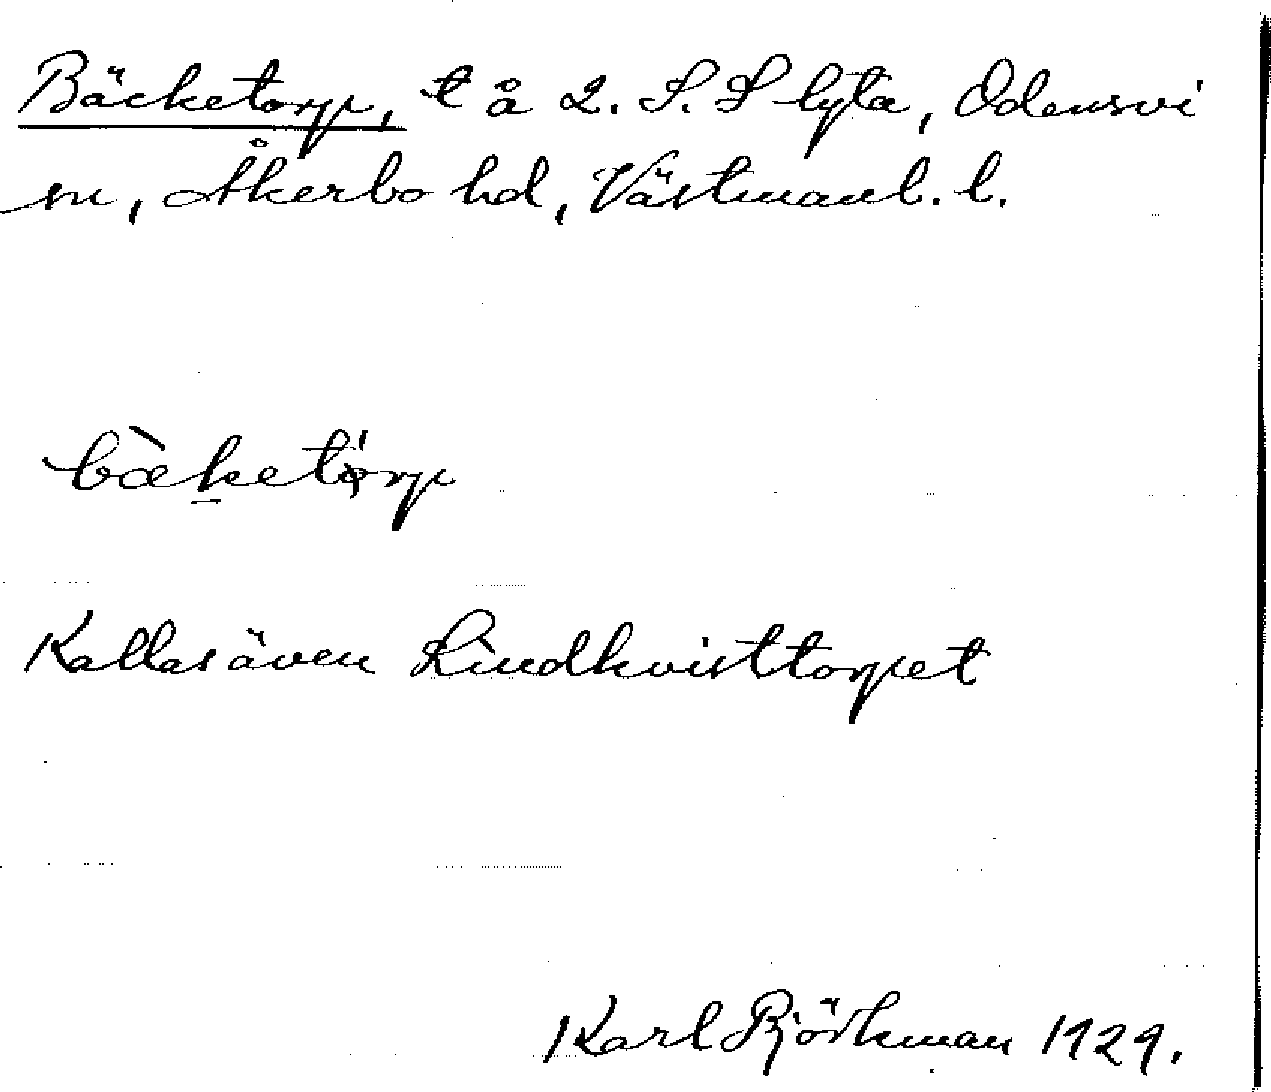 Bäcketorp, t å 2. S. Slyta, Odensvi
sn, Åkerbo hd, Västmanl. l.
bæ̀ketörp
Kallas även Lindkvisttorpet
Karl Björkman 1929.